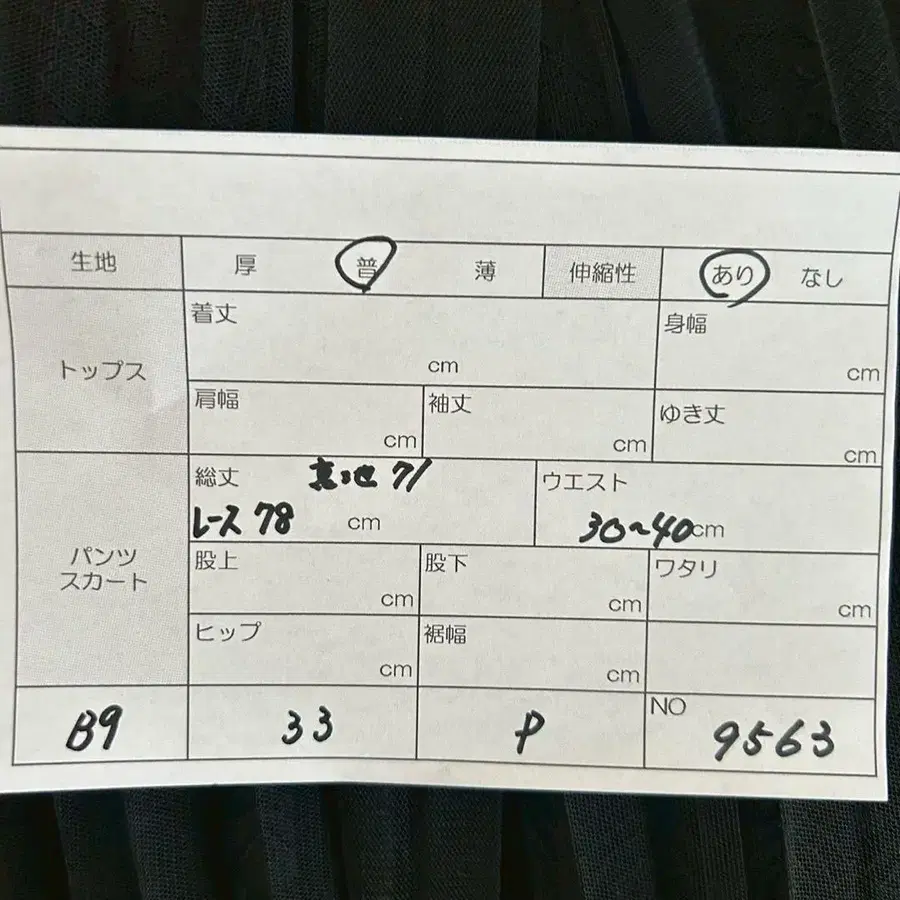 生地 厚 普 薄 伸縮性 あり なし
トップス
着丈 cm
身幅 cm
肩幅 cm
袖丈 cm
ゆき丈 cm
パンツ
スカート
総丈 裏地 71
レース 78 cm
ウエスト
30~40cm
股上 cm
股下 cm
ワタリ cm
ヒップ cm
裾幅 cm
B9 33 P NO 9563